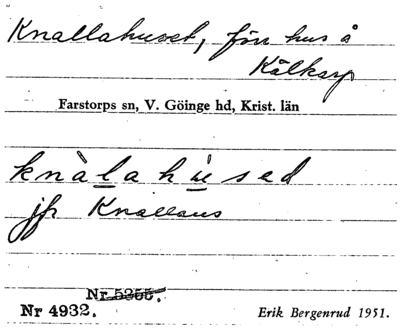 Knallahuset, förr hus å
Kälkarp
Farstorps sn, V. Göinge hd, Krist. län
knàlahùsed
jfr Knallans
Nr 5255.
Nr 4932.
Erik Bergenrud 1951.